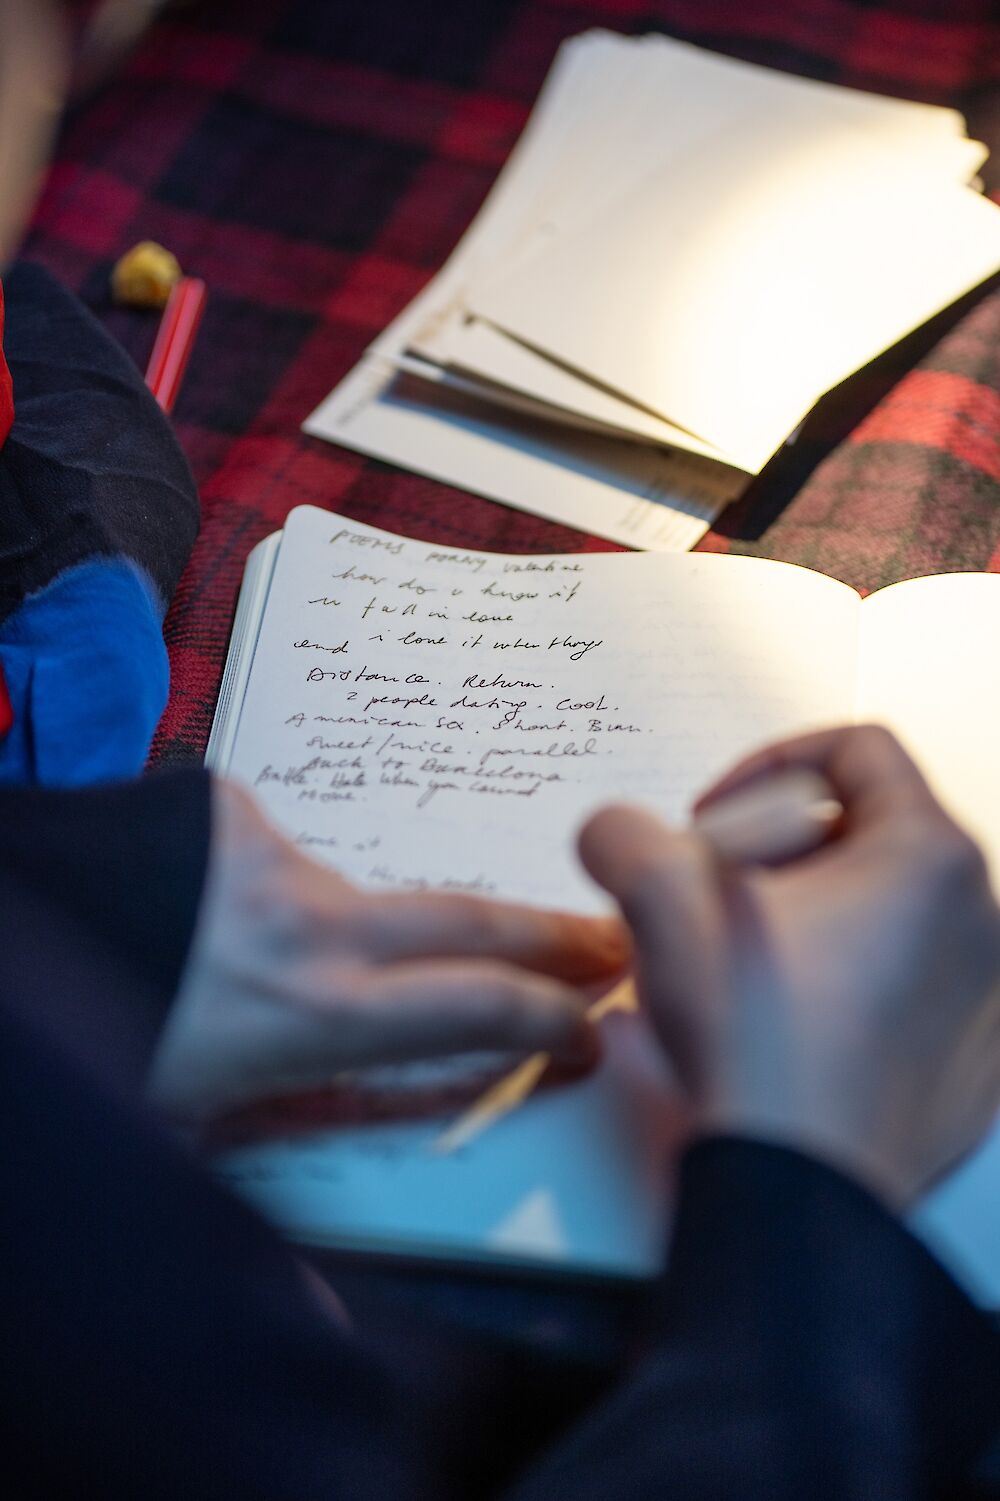 POEMS PORNY valentine
how do u know it
u fall in love
and i love it when things
Distance. Return.
2 people dating. Cool.
American Sex. Short. Bian.
sweet/nice. parallel.
Back to Barcelona.
Battle. Hate when you cannot
move.
love it
thing ends